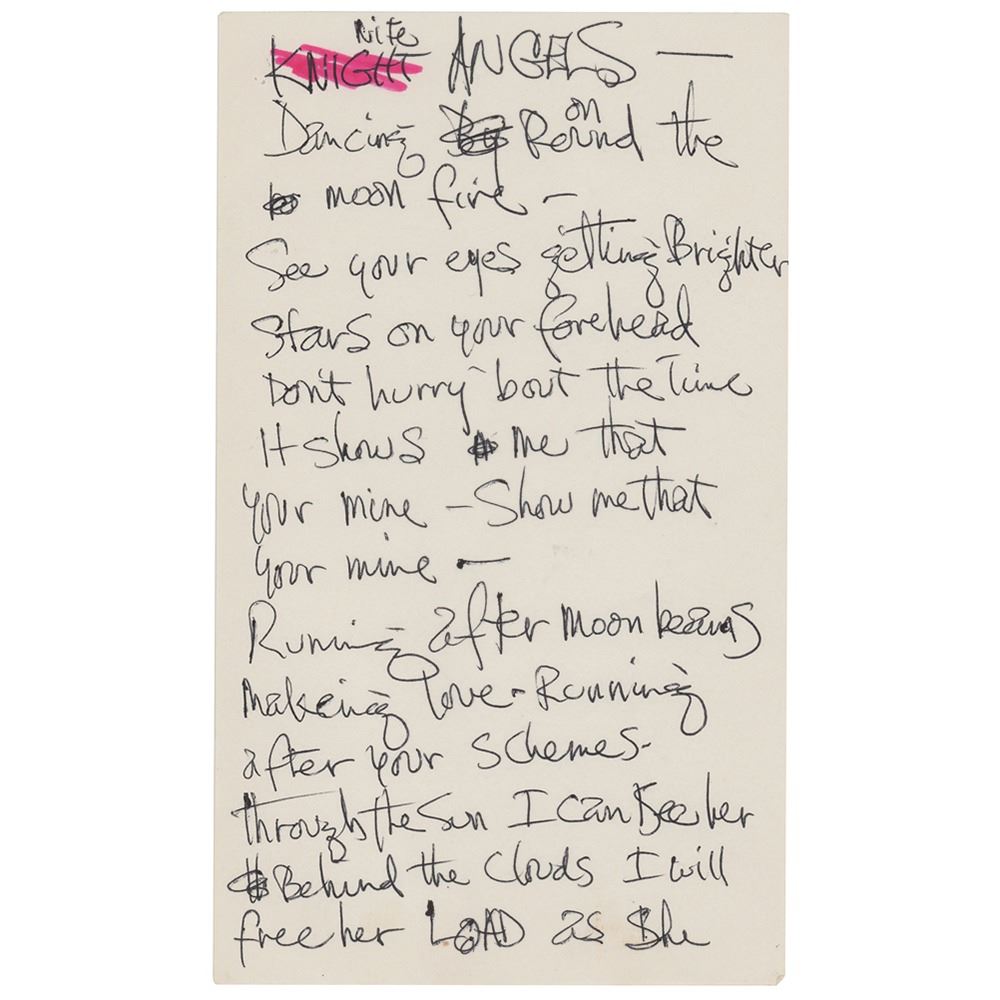 Nite
KNIGHT ANGELS —
Dancing on Round the
moon fire –
See your eyes getting Brighter
Stars on your forehead
Don't hurry 'bout the Time
It shows me that
your mine – Show me that
your mine —
Running after Moon beams
Makeing love – Running
after your schemes –
through the Sun I can see her
Behind the clouds I will
free her LOAD as She